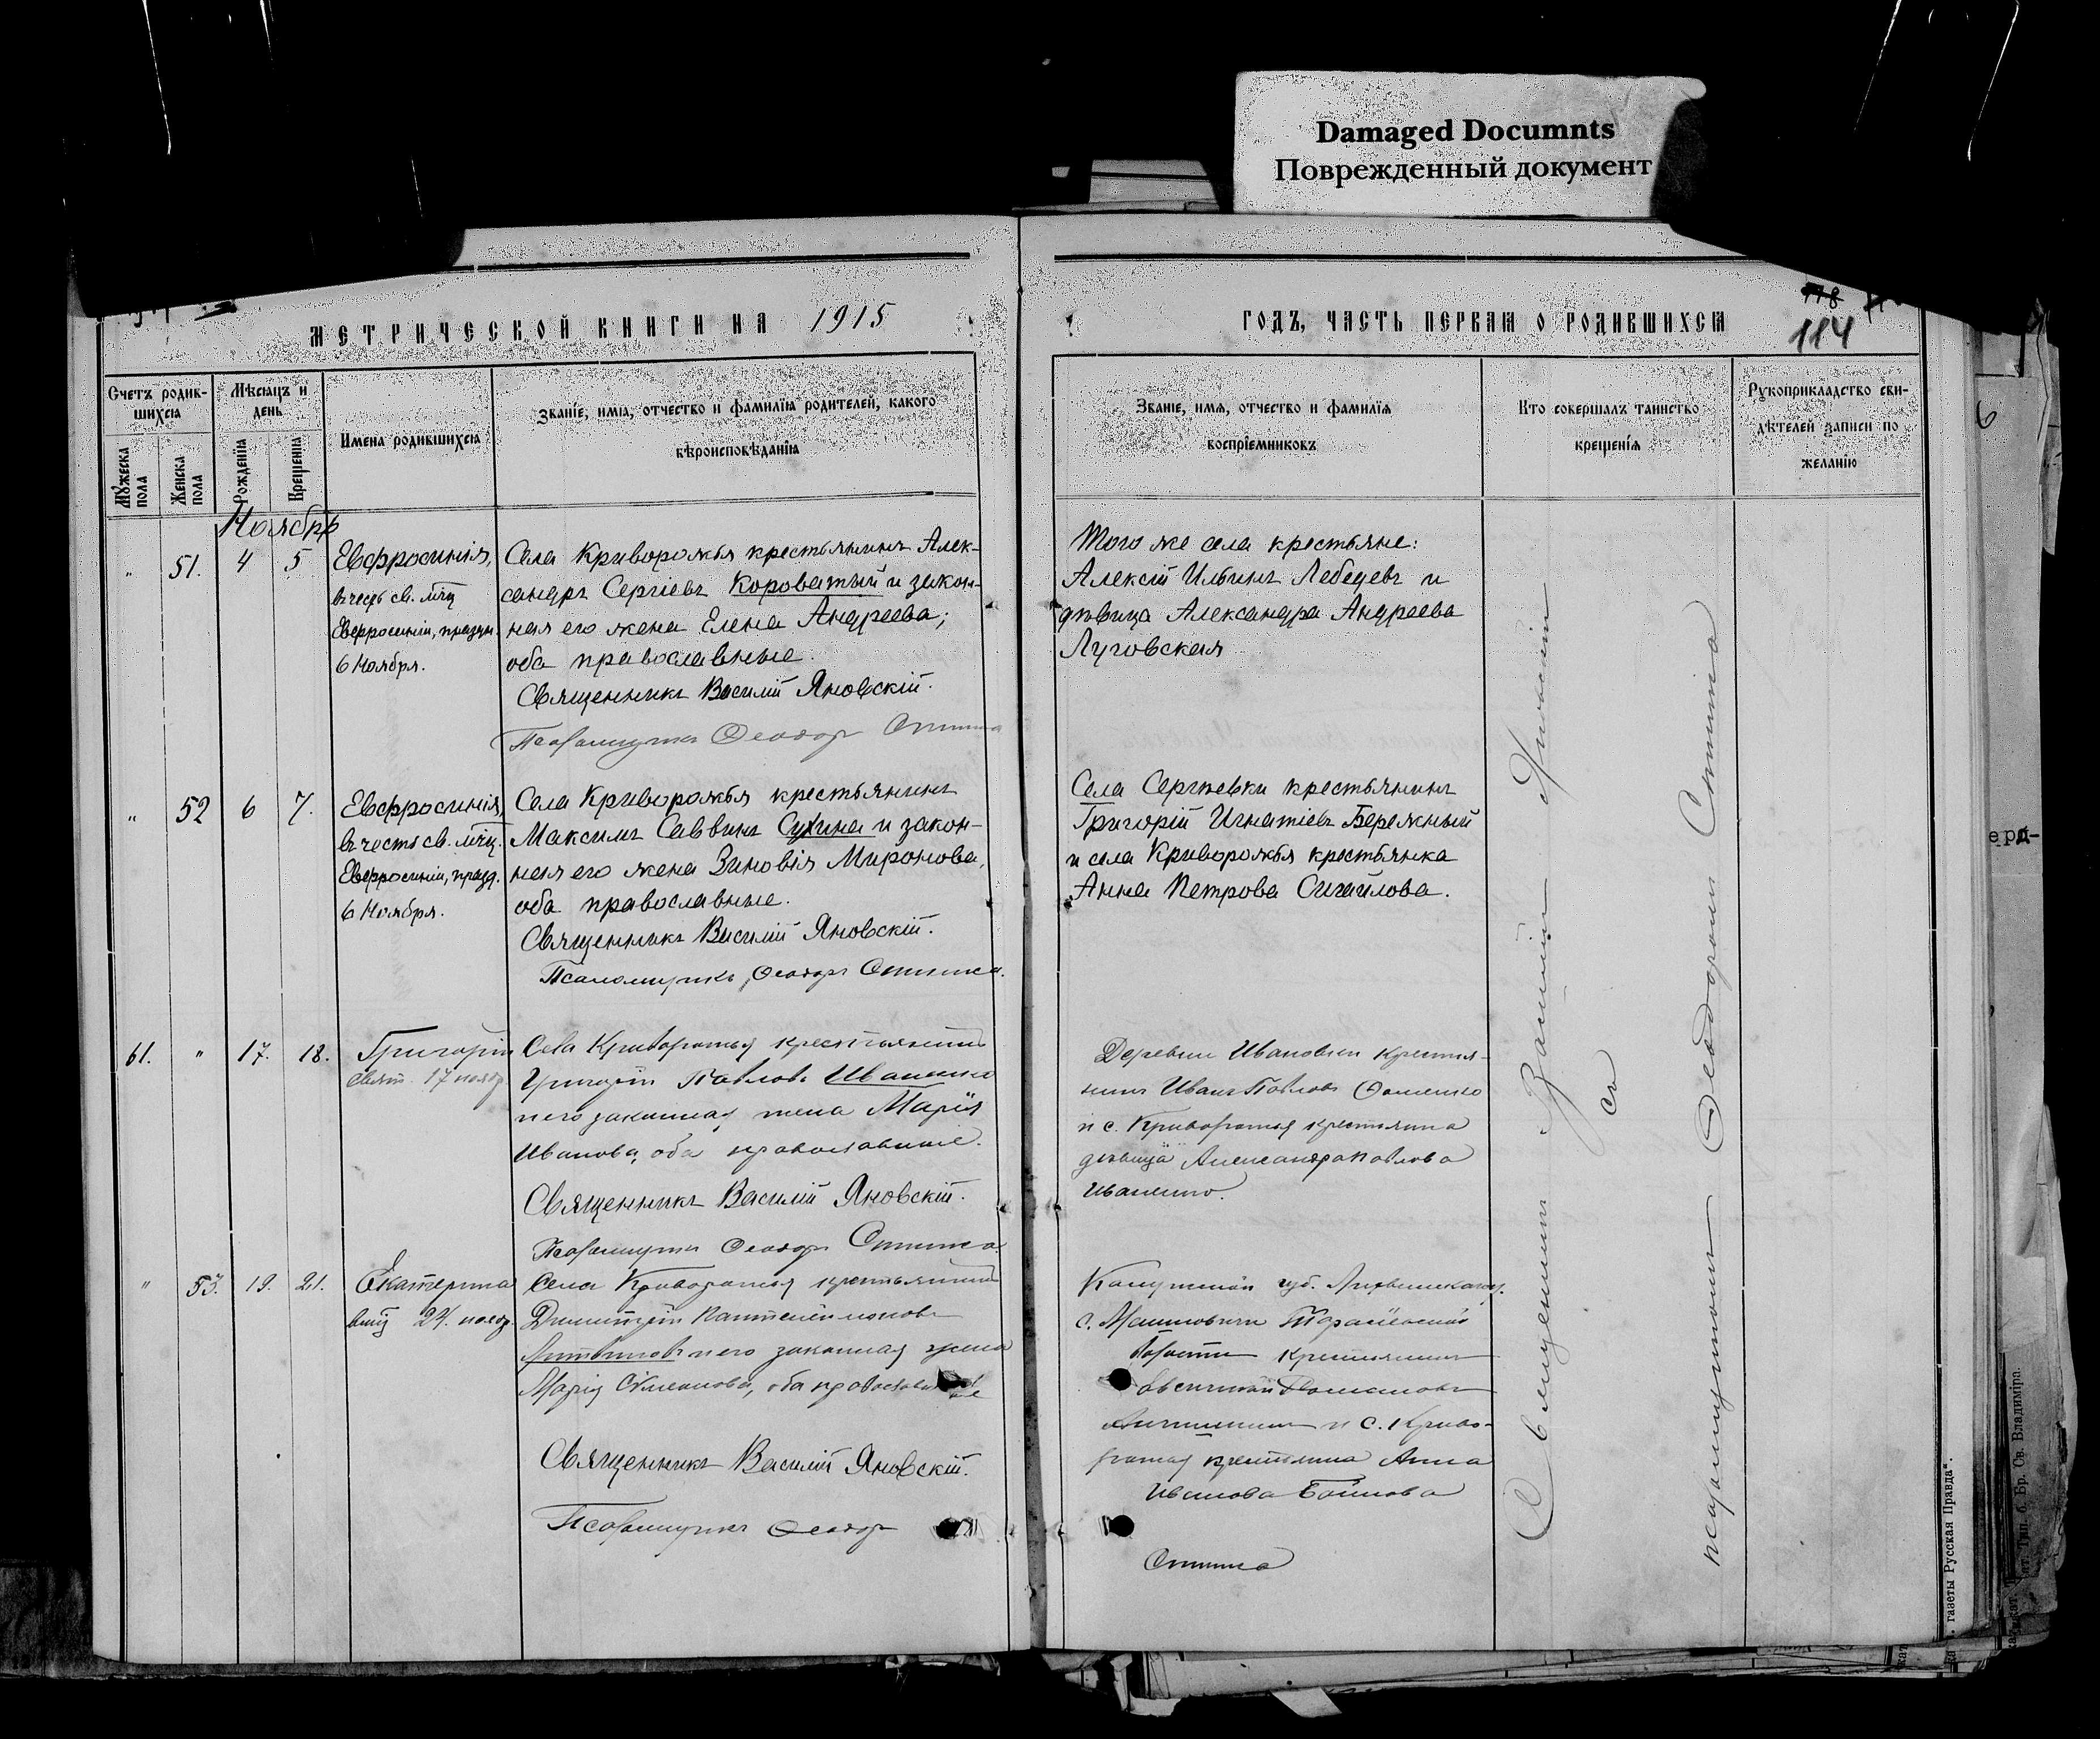 Damaged Documnts
Поврежденный документ
МЕТРИЧЕСКОЙ КНИГИ НА 1915
ГОДЪ, ЧАСТЬ ПЕРВАЯ О РОДИВШИХСЯ
118
114
Счетъ родив-
шихся
Мѣсяцъ и
день
Мужеска пола
Женска пола
Рожденія
Крещенія
Имена родившихся
Званіе, имя, отчество и фамилія родителей, какого
вѣроисповѣданія
Званіе, имя, отчество и фамилія
воспріемниковъ
Кто совершалъ таинство
крещенія
Рукоприкладство сви-
дѣтелей записи по
желанію
Ноябрь
" 51. 4 5
Евфросинія,
въ честь св. мчц
Евфросиніи, праздн.
6 Ноября.
Села Криворожья крестьянинъ Алек-
сандръ Сергіевъ Короватый и закон-
ная его жена Елена Андреева;
оба православные.
Священникъ Василій Яновскій.
Псаломщикъ Ѳеодоръ
Того же села крестьяне:
Алексій Ильинъ Лебедевъ и
дѣвица Александра Андреева
Луговская
" 52 6 7.
Евфросинія,
въ честь св. мчц.
Евфросиніи, празд.
6 Ноября.
Села Криворожья крестьянинъ
Максимъ Саввинъ Сухина и закон-
ная его жена Зиновія Миронова,
оба православные.
Священникъ Василій Яновскій.
Псаломщикъ Ѳеодоръ
Села Сергѣевки крестьянинъ
Григорій Игнатіевъ Бережный
и села Криворожья крестьянка
Анна Петрова Сигайлова.
61. " 17. 18.
Григорій
17 нояб.
Села Криворожья крестьянинъ
Григорій Павловъ Иваненко
и его законная жена Марія
Иванова, оба православные.
Священникъ Василій Яновскій.
Псаломщикъ Ѳеодоръ
Деревни Ивановки крестья-
нинъ Иванъ Павловъ Ѳоменко
и с. Криворожья крестьянка
дѣвица Александра Павлова
Иваненко.
" 53. 19. 21.
Екатерина
24 нояб.
Села Криворожья крестьянинъ
Димитрій Пантелеимоновъ
Литвиновъ и его законная жена
Марія Симеонова, оба православные
Священникъ Василій Яновскій.
Псаломщикъ Ѳеодоръ
Калужской губ.
с.
волости крестьянинъ
и с. Криво-
рожья крестьянка Анна
Иванова
Священникъ Василій Яновскій
съ
псаломщикомъ Ѳеодоромъ
6
ерд-
газеты Русская Правда".
Тип. б. Бр. Св. Владиміра.